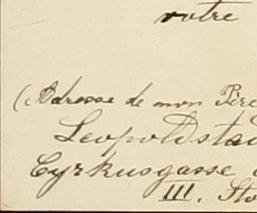 votre
(Adresse de mon Père
Leopoldstad
Cyrkusgasse
III. Sto